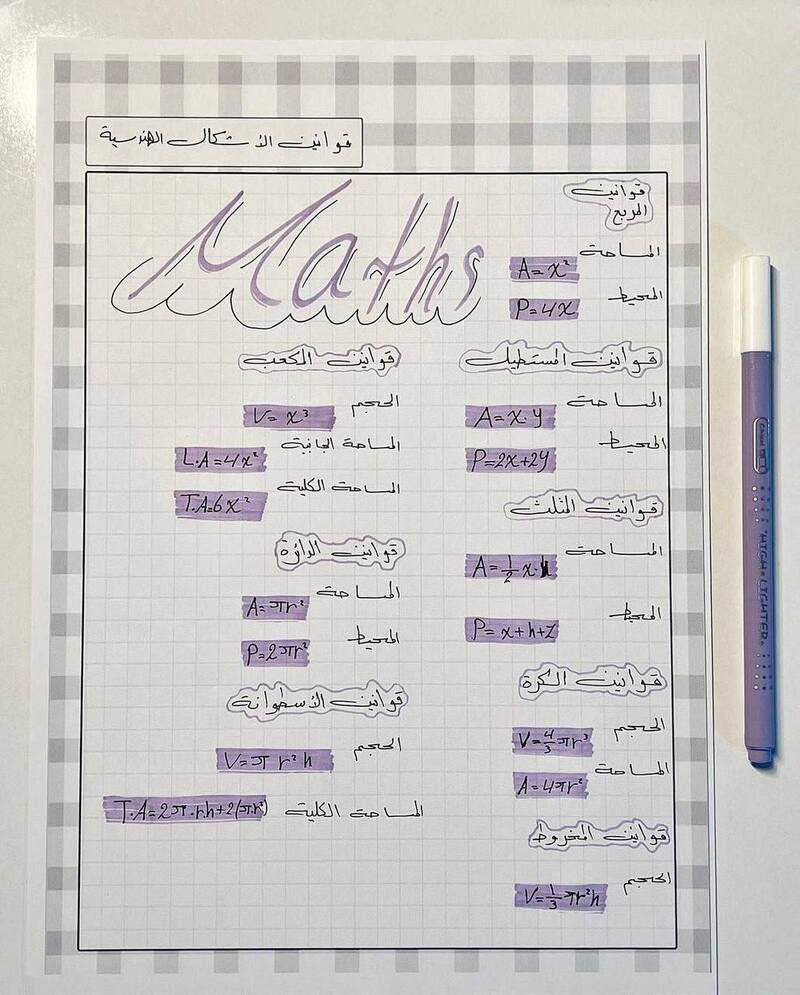 قوانين الأشكال الهندسية
Maths
قوانين
المربع
المساحة
A = x²
المحيط
P = 4x
قوانين المستطيل
المساحة
A = x.y
المحيط
P = 2x+2y
قوانين المثلث
المساحة
A = 1/2 x.h
المحيط
P = x+h+z
قوانين الكرة
الحجم
V = 4/3 πr³
المساحة
A = 4πr²
قوانين المخروط
الحجم
V = 1/3 πr²h
قوانين المكعب
الحجم
V = x³
المساحة الجانبية
L.A = 4x²
المساحة الكلية
T.A = 6x²
قوانين الدائرة
المساحة
A = πr²
المحيط
P = 2πr²
قوانين الأسطوانة
الحجم
V = π r²h
المساحة الكلية
T.A = 2π.rh+2(π.r²)
HIGH LIGHTER